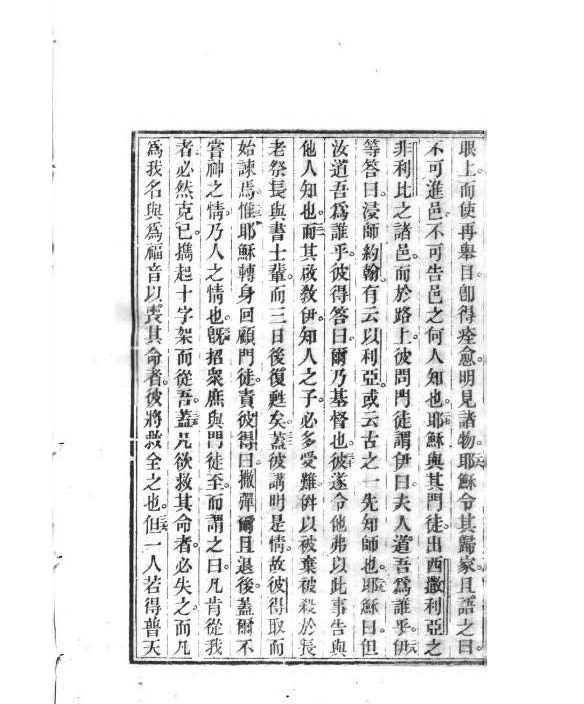 眼上而使再舉目卽得痊愈明見諸物耶穌令其歸家且語之曰
不可進邑不可告邑之何人知也耶穌與其門徒出西撒利亞之
非利比之諸邑而於路上彼問門徒謂伊曰夫人道吾為誰乎伊
等答曰浸師約翰有云以利亞或云古之一先知師也耶穌曰但
汝道吾為誰乎彼得答曰爾乃基督也彼遂令他弗以此事告與
他人知也而其啟教伊知人之子必多受難倂以被棄被殺於長
老祭長與書士輩而三日後復甦矣蓋彼講明是情故彼得取而
始諫焉惟耶穌轉身回顧門徒責彼得曰撒彈爾且退後蓋爾不
嘗神之情乃人之情也旣招衆庶與門徒至而謂之曰凡肯從我
者必然克己攜起十字架而從吾蓋凡欲救其命者必失之而凡
為我名與為福音以喪其命者彼將救全之也但一人若得普天